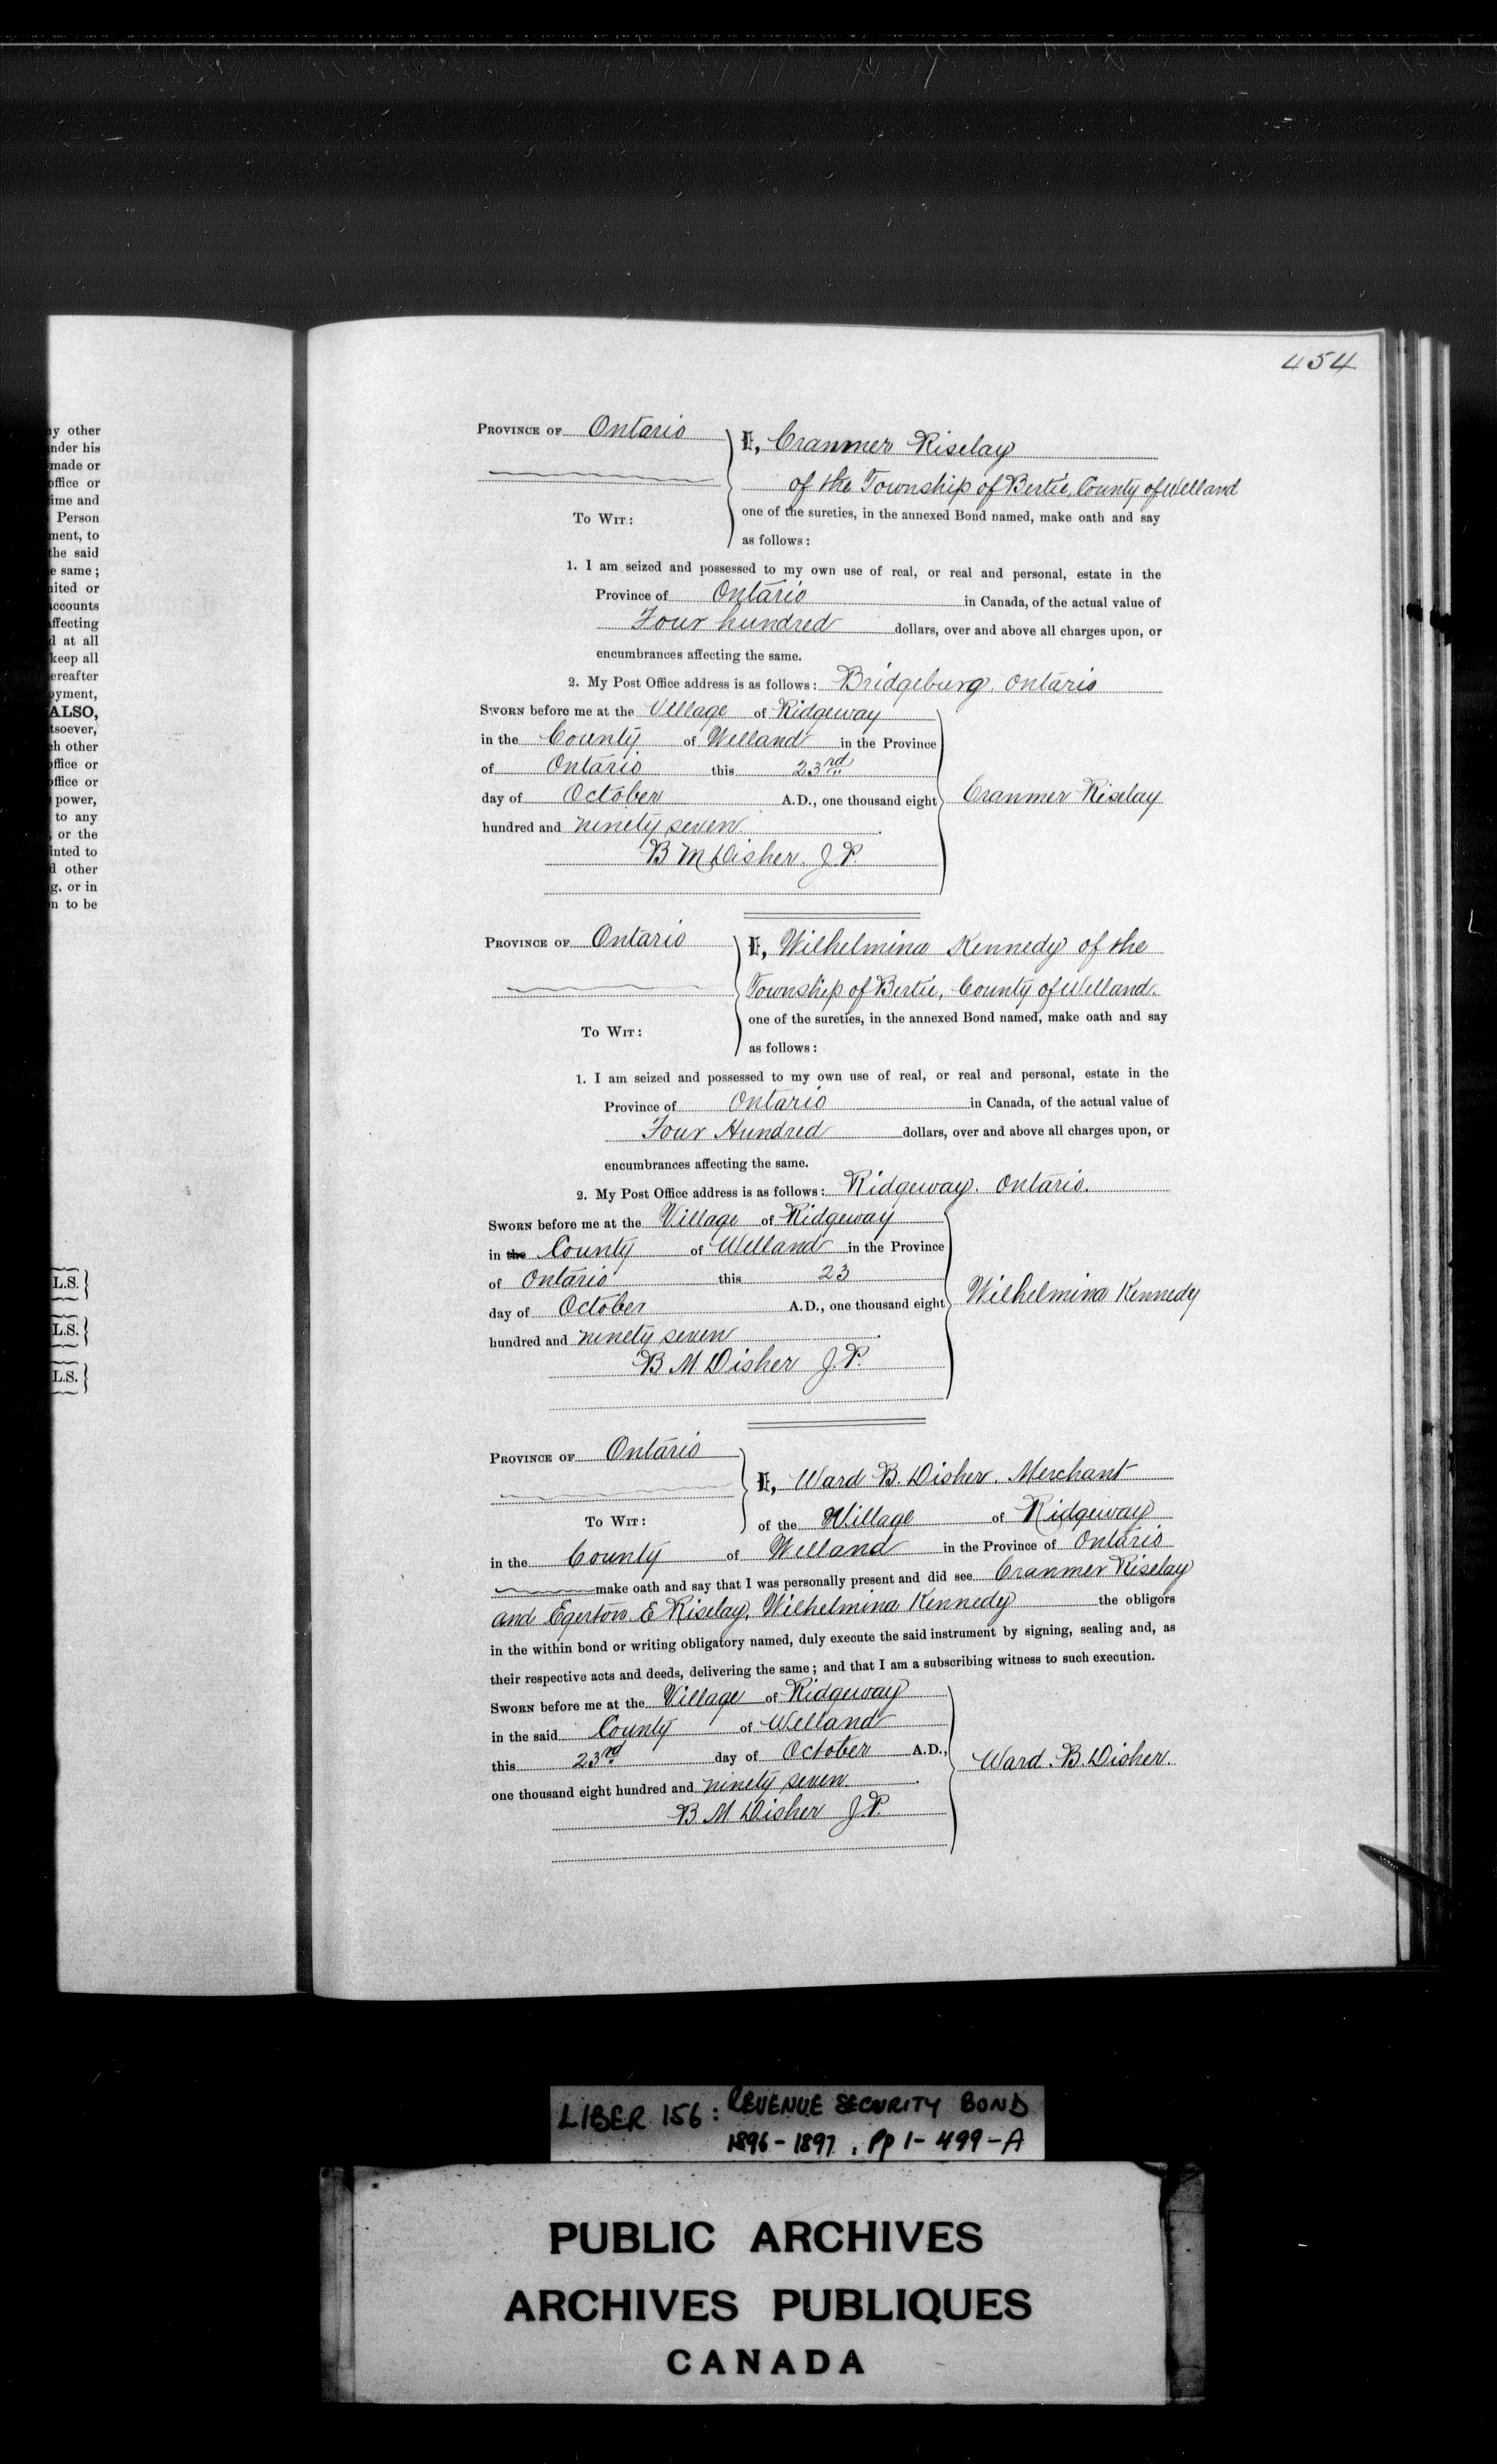 454
y other
nder his
made or
office or
ime and
Person
ment, to
the said
e same;
nited or
accounts
ffecting
d at all
keep all
ereafter
oyment,
ALSO,
tsoever,
h other
office or
office or
power,
to any
, or the
inted to
d other
g, or in
n to be
L.S.
L.S.
L.S.
PROVINCE OF Ontario
I, Cranmer Riselay
of the Township of Bertie, County of Welland
TO WIT:
one of the sureties, in the annexed Bond named, make oath and say
as follows:
1. I am seized and possessed to my own use of real, or real and personal, estate in the
Province of Ontario in Canada, of the actual value of
Four hundred dollars, over and above all charges upon, or
encumbrances affecting the same.
2. My Post Office address is as follows: Bridgeburg. Ontario
SWORN before me at the Village of Ridgeway
in the County of Welland in the Province
of Ontario this 23rd
day of October A.D., one thousand eight
Cranmer Riselay
hundred and ninety seven.
B M Disher. J.P.
PROVINCE OF Ontario
I, Wilhelmina Kennedy of the
Township of Bertie, County of Welland.
TO WIT:
one of the sureties, in the annexed Bond named, make oath and say
as follows:
1. I am seized and possessed to my own use of real, or real and personal, estate in the
Province of Ontario in Canada, of the actual value of
Four Hundred dollars, over and above all charges upon, or
encumbrances affecting the same.
2. My Post Office address is as follows: Ridgeway. Ontario.
SWORN before me at the Village of Ridgeway
in the County of Welland in the Province
of Ontario this 23
day of October A.D., one thousand eight
Wilhelmina Kennedy
hundred and ninety seven.
B M Disher J.P.
PROVINCE OF Ontario
I, Ward B. Disher. Merchant
TO WIT:
of the Village of Ridgeway
in the County of Welland in the Province of Ontario
make oath and say that I was personally present and did see Cranmer Riselay
and Egerton E Riselay, Wilhelmina Kennedy the obligors
in the within bond or writing obligatory named, duly execute the said instrument by signing, sealing and, as
their respective acts and deeds, delivering the same; and that I am a subscribing witness to such execution.
SWORN before me at the Village of Ridgeway
in the said County of Welland
this 23rd day of October A.D.,
Ward. B. Disher.
one thousand eight hundred and ninety seven.
B. M. Disher J.P.
LIBER 156: REVENUE SECURITY BOND
1896-1897. Pp 1-499-A
PUBLIC ARCHIVES
ARCHIVES PUBLIQUES
CANADA